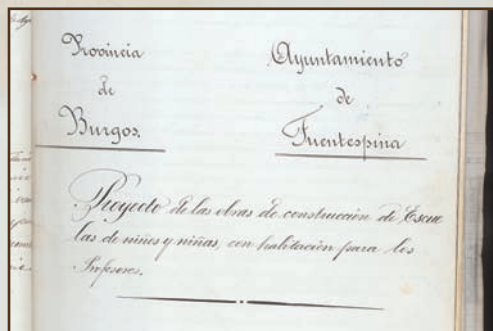 Provincia
de
Burgos.
Ayuntamiento
de
Fuentespina
Proyecto de las obras de construcción de Escue
las de niños y niñas, con habitación para los
Profesores.